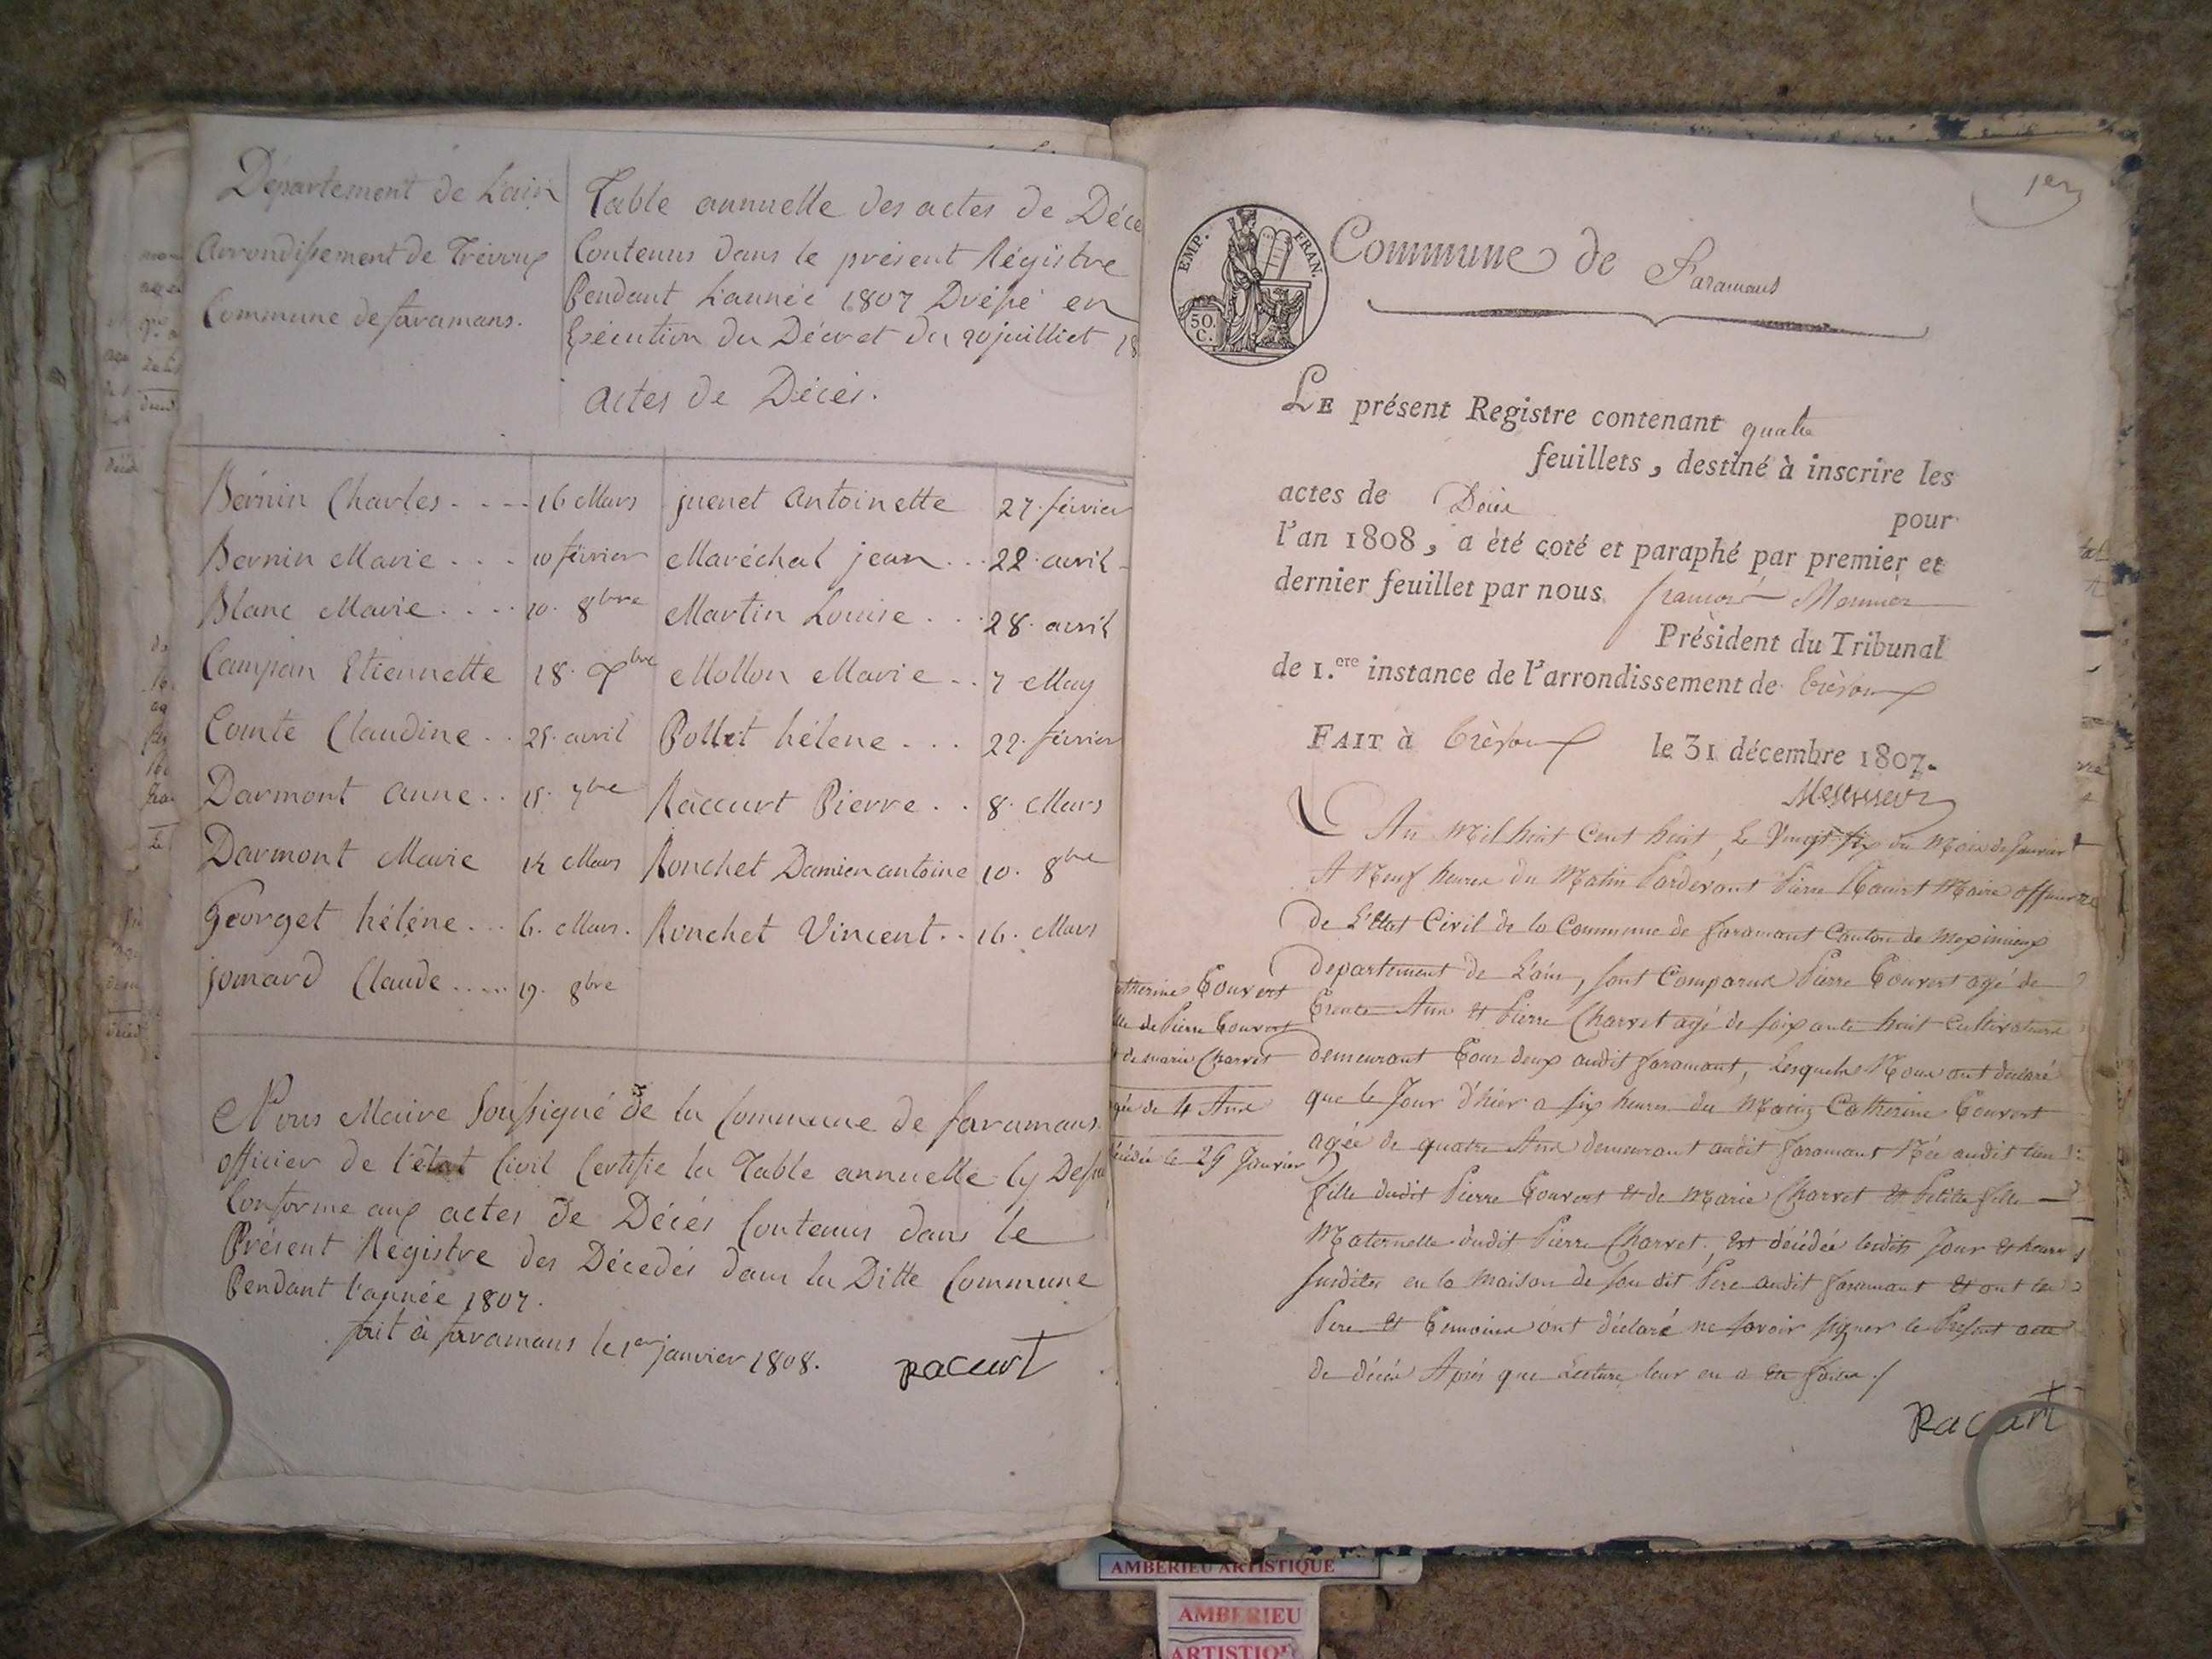 Département de L'ain
Arrondissement de Trévoux
Commune de faramans.
Table annuelle des actes de Déce
Contenus dans le présent Régistre
Pendant L'année 1807 Dressé en
Exécution du Décret du 20 juilliet 18
Actes de Décès.
Bernin Charles - - - 16 Mars
Bernin Marie . . . 10 février
Blanc Marie . . . . 10. 8bre
Campan Etiennette 18. 7bre
Comte Claudine . . 25. avril
Darmont anne . . 15. 7bre
Darmont Marie 14 Mars
Georget héléne . . . 6. Mars.
jomard Claude ..... 19. 8bre
juenet Antoinette 27. février
Maréchal jean . . . 22. avril
Martin Louise . . . 28. avril
Mollon Marie . . 7 May
Pollet hélene . . . 22. février
Raccurt Pierre . . 8. Mars
Ronchet Damien antoine 10. 8bre
Ronchet Vincent . . 16. Mars
Nous Maire Soussigné de la Commune de faramans
officier de l'état Civil Certifie la Table annuelle Cy Dessu
Conforme aux actes de Décés Contenus dans le
Présent Régistre des Décedés dans la Ditte Commune
Pendant l'année 1807.
fait à faramans le 1er janvier 1808. Raccurt
1er
EMP. FRAN.
50.
C.
Commune de Faramans
LE présent Registre contenant quatre
feuillets, destiné à inscrire les
actes de Décès pour
l'an 1808, a été coté et paraphé par premier et
dernier feuillet par nous françois
Président du Tribunal
de 1.ere instance de l'arrondissement de Trèvoux
FAIT à Trèvoux le 31 décembre 1807.
L'An Mil huit Cent huit, Le Vingt six du Mois de Janvier
A Neuf heures du Matin Pardevant Pierre Raccurt Maire officier
de L'Etat Civil de la Commune de faramant Canton de Meximieux
departement de L'ain, sont Comparus Pierre Convert agé de
Trente Ans et Pierre Charvet agé de soixante huit Cultivateurs
demeurant Tous deux audit faramant, Lesquels Nous ont declaré
que le Jour d'hier a six heures du Matin Catherine Convert
agée de quatre Ans demeurant audit faramant Née audit lieu
fille dudit Pierre Convert et de Marie Charvet et Petitte fille
Maternelle dudit Pierre Charvet, est décédée lesdits Jour et heure
susdites en la Maison de son dit Pere audit faramant et ont les
Pere et Temoins ont déclaré ne savoir signer le Present acte
de décés Aprés que Lecture leur en a été faite ./
Raccurt
atherine Convert
lle de Pierre Convert
t de marie Charvet
gée de 4 Ans
écédée le 25 Janvier
AMBERIEU ARTISTIQUE
AMBERIEU
ARTISTIQUE